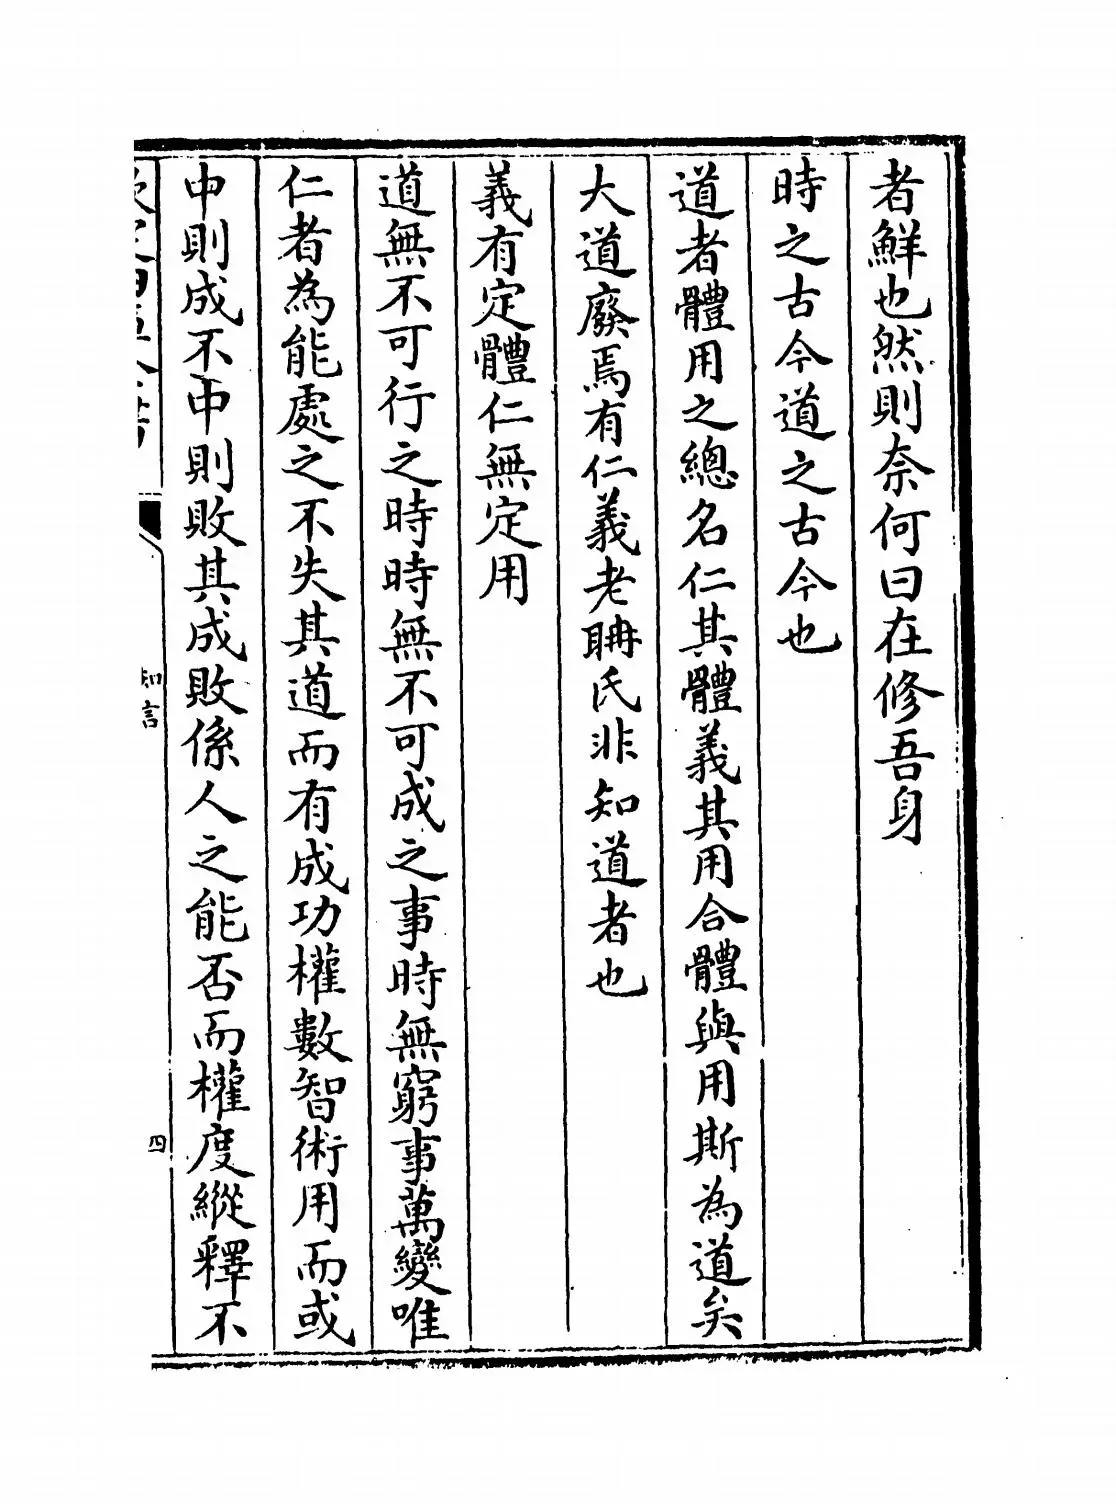 者鮮也然則奈何曰在修吾身
時之古今道之古今也
道者體用之總名仁其體義其用合體與用斯為道矣
大道廢焉有仁義老聃氏非知道者也
義有定體仁無定用
道無不可行之時時無不可成之事時無窮事萬變唯
仁者為能處之不失其道而有成功權數智術用而或
中則成不中則敗其成敗係人之能否而權度縱釋不
知言
四